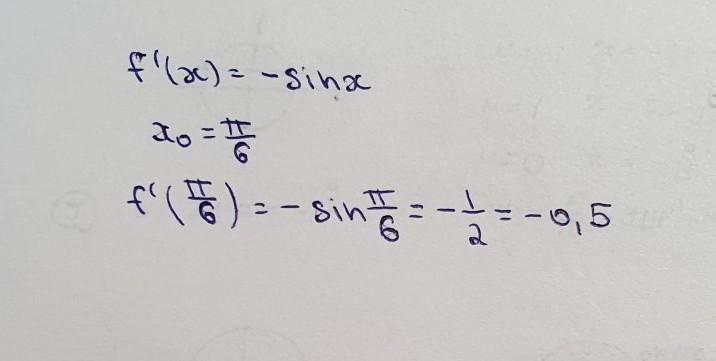 f'(x) = -sinx
x₀ = π/6
f'(π/6) = - sin π/6 = - 1/2 = -0,5